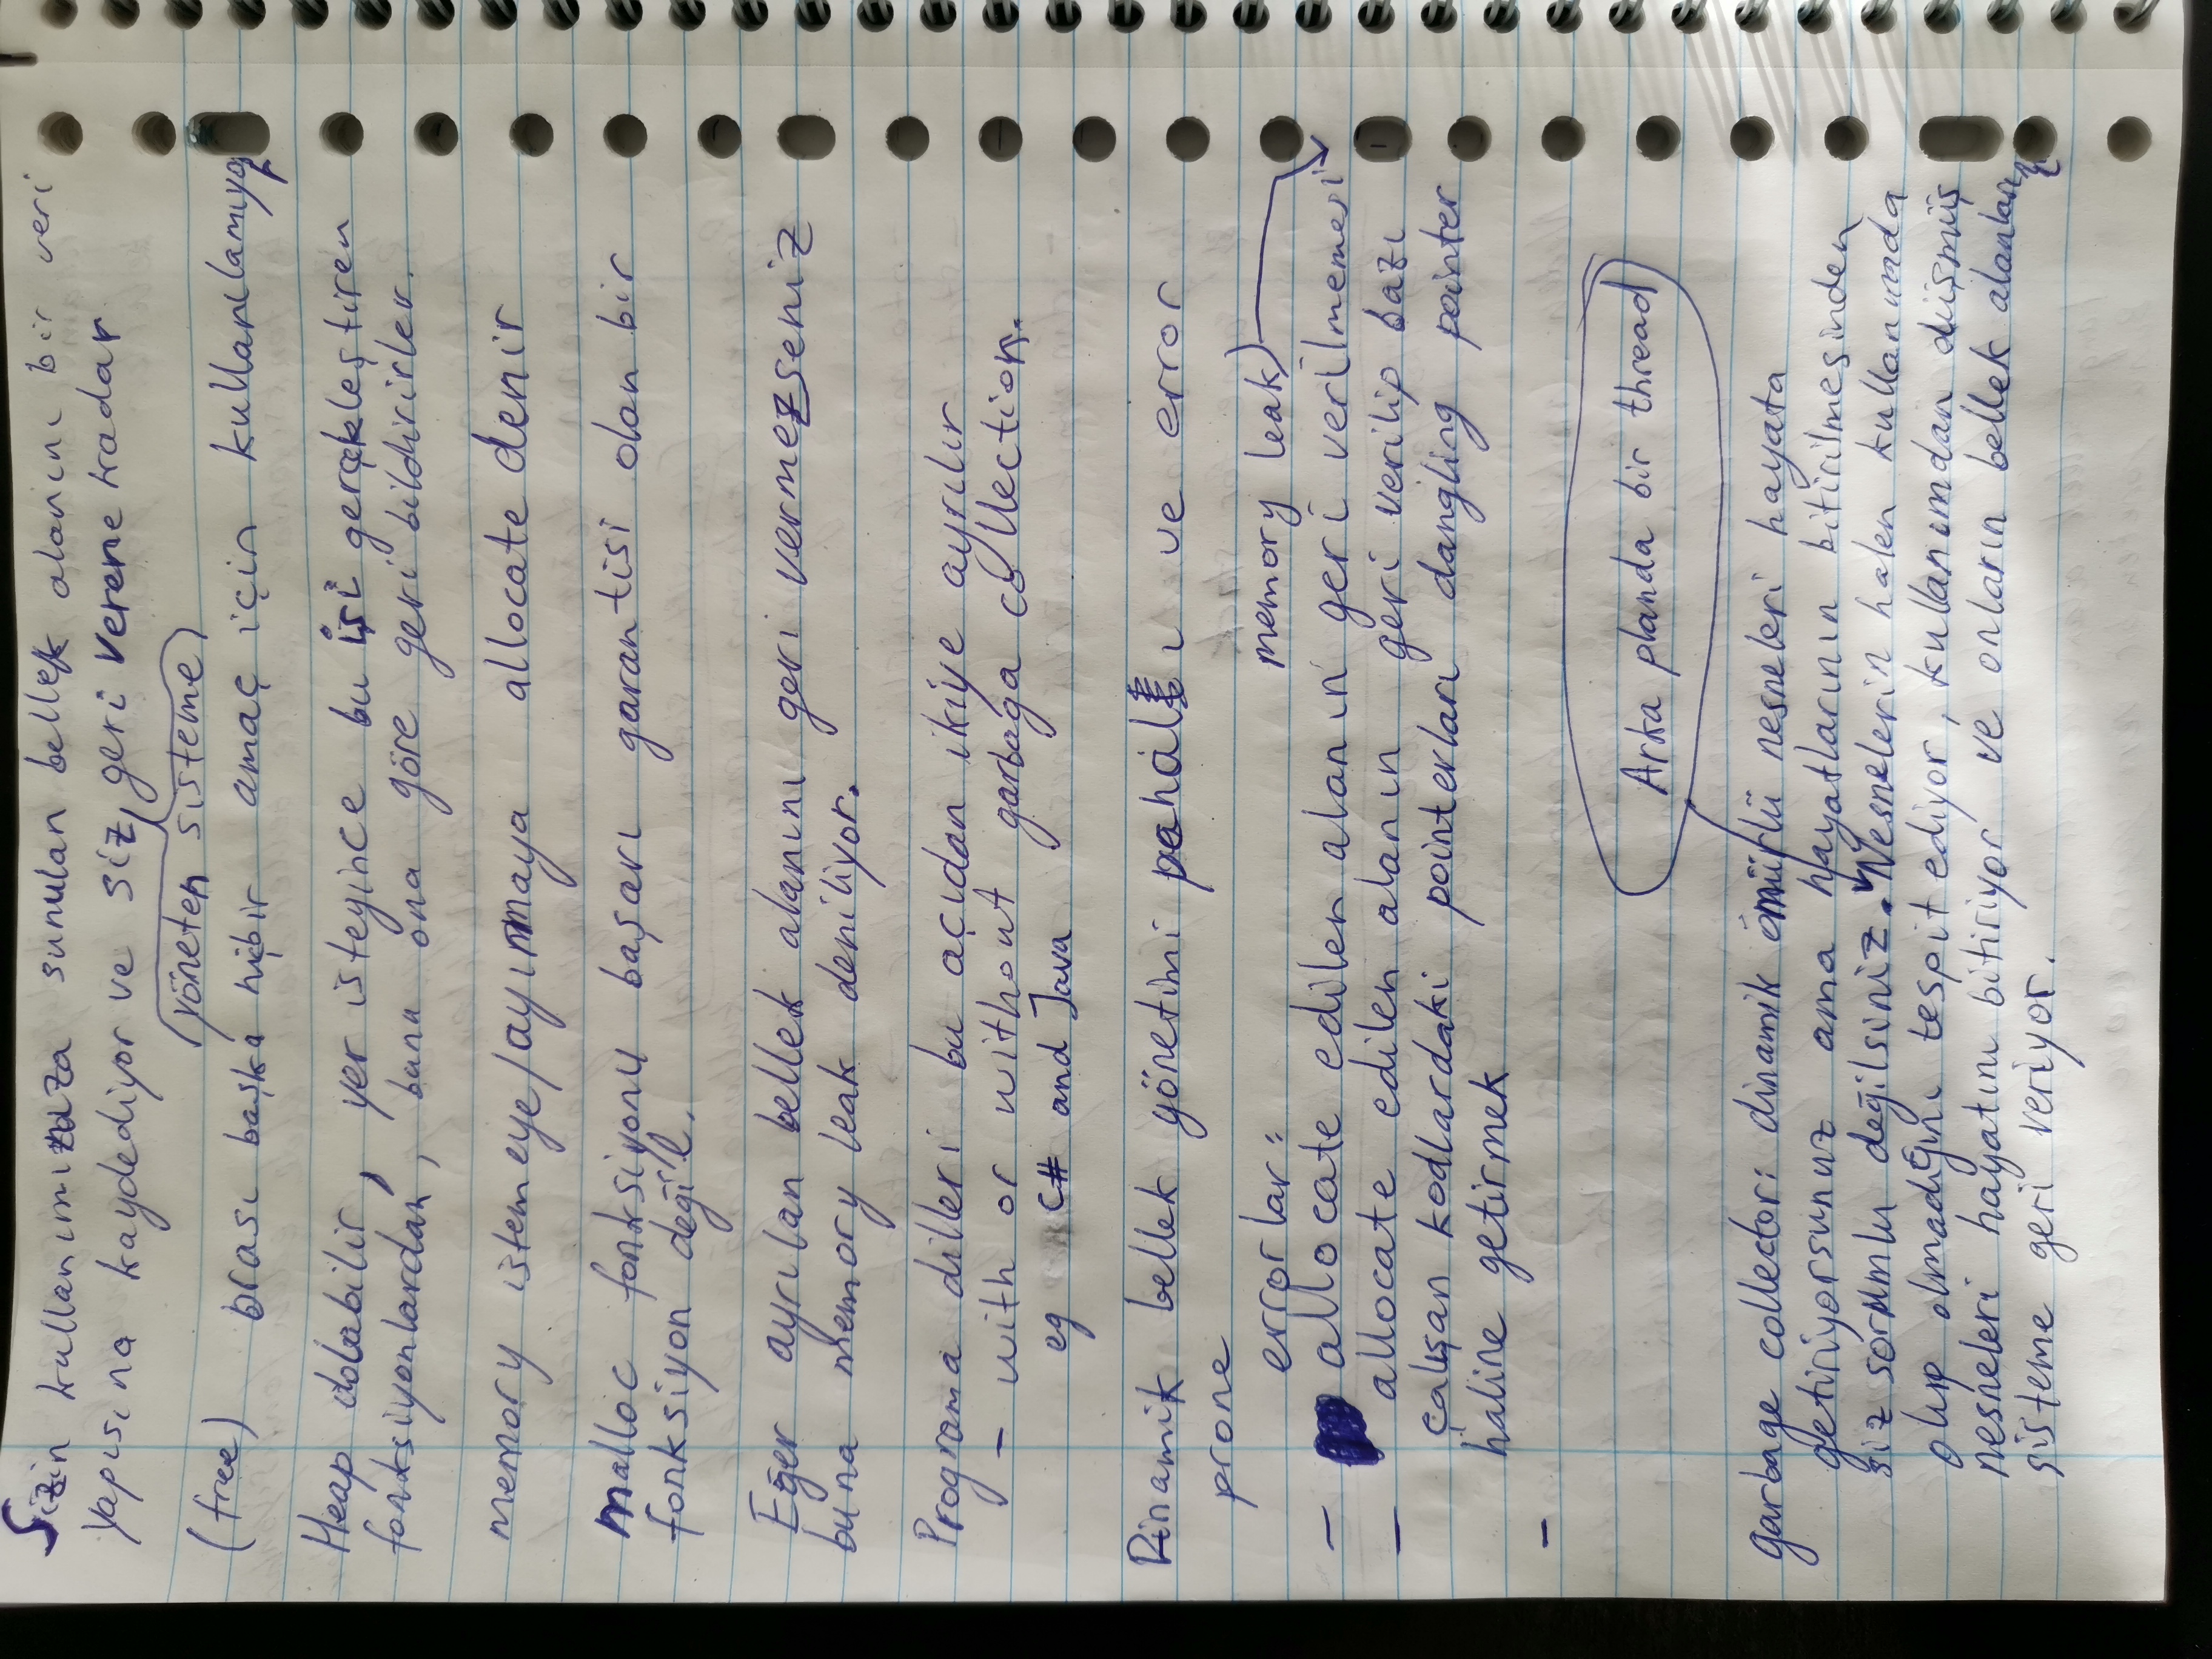 Sizin kullanımınıza sunulan bellek alanını bir veri
yapısına kaydediyor ve siz, geri verene kadar
(yöneten sisteme)
(free) orası başka hiçbir amaç için kullanılamıyor
Heap dolabilir, yer isteyince bu işi gerçekleştiren
fonksiyonlardan, bunu ona göre geri bildirirler.
memory istemeye/ayırmaya allocate denir
malloc fonksiyonu başarı garantisi olan bir
fonksiyon değil.
Eğer ayrılan bellek alanını geri vermezseniz
buna memory leak deniliyor.
Programa dilleri bu açıdan ikiye ayrılır
- with or without garbaga collection.
eg C# and Java
Dinamik bellek yönetimi pahalı ve error
prone
errorlar: memory leak)
- allocate edilen alanın geri verilmemesi
- allocate edilen alanın geri verilip bazı
çalışan kodlardaki pointerları dangling pointer
haline getirmek
-
Arka planda bir thread
garbage collector: dinamik ömürlü nesneleri hayata
getiriyorsunuz ama hayatlarının bitirilmesinden
siz sorumlu değilsiniz. Nesnelerin halen kullanımda
olup olmadığını tespit ediyor, kullanımdan düşmüş
nesneleri hayatını bitiriyor ve onların bellek alanlarını
sisteme geri veriyor.